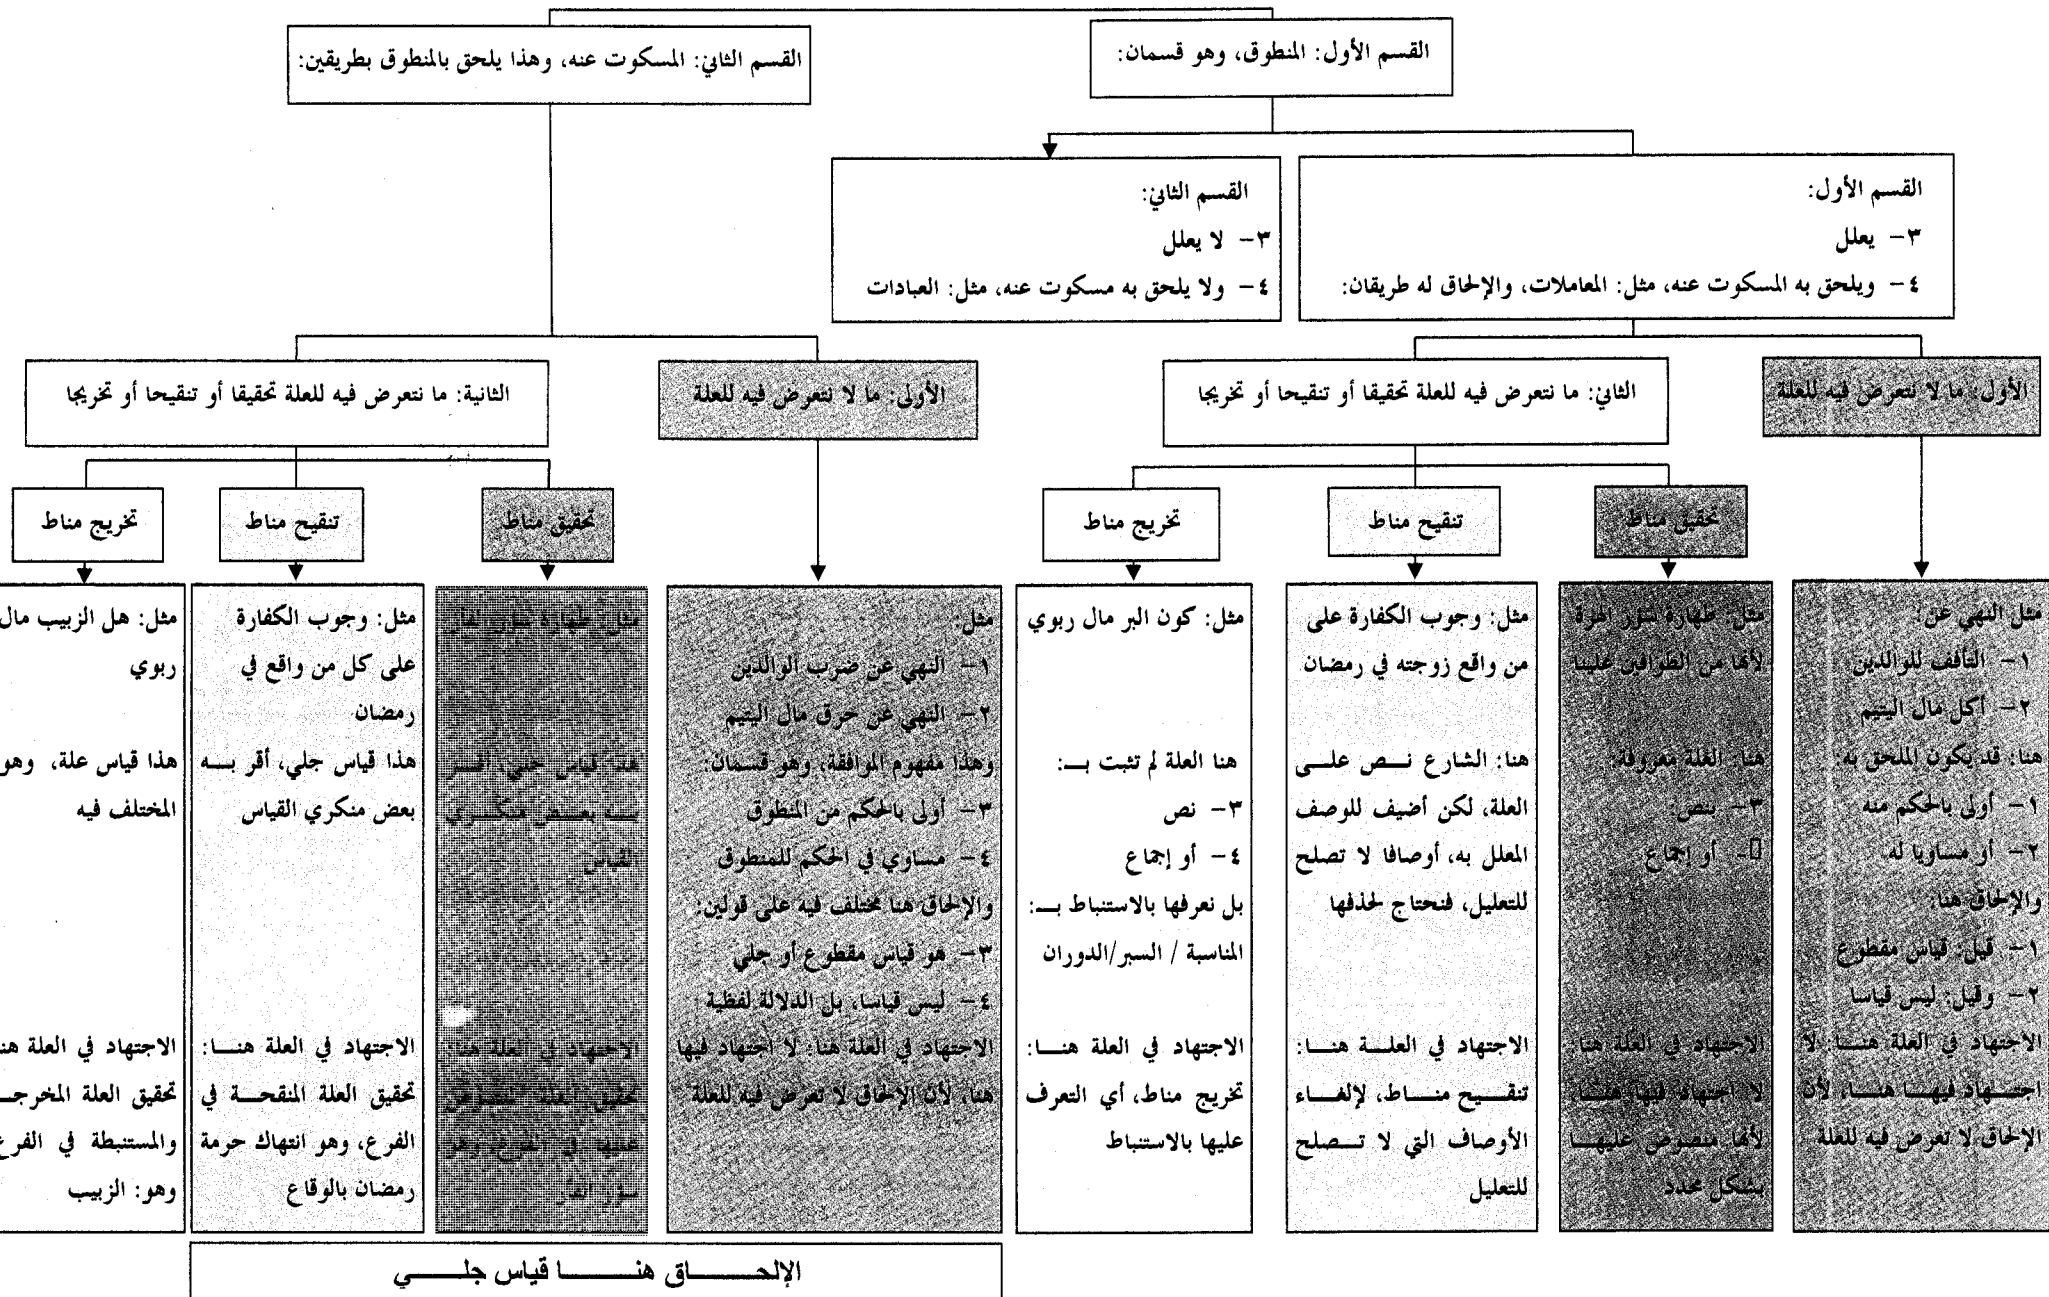 القسم الأول: المنطوق، وهو قسمان:
القسم الثاني: المسكوت عنه، وهذا يلحق بالمنطوق بطريقين:
القسم الأول:
٣- يعلل
٤- ويلحق به المسكوت عنه، مثل: المعاملات، والإلحاق له طريقان:
القسم الثاني:
٣- لا يعلل
٤- ولا يلحق به مسكوت عنه، مثل: العبادات
الأول: ما لا نتعرض فيه للعلة
الثاني: ما نتعرض فيه للعلة تحقيقا أو تنقيحا أو تخريجا
الأولى: ما لا نتعرض فيه للعلة
الثانية: ما نتعرض فيه للعلة تحقيقا أو تنقيحا أو تخريجا
تحقيق مناط
تنقيح مناط
تخريج مناط
تحقيق مناط
تنقيح مناط
تخريج مناط
مثل النهي عن:
١- التأفف للوالدين
٢- أكل مال اليتيم
هنا: قد يكون الملحق به:
١- أولى بالحكم منه
٢- أو مساويا له
والإلحاق هنا:
١- قيل: قياس مقطوع
٢- وقيل: ليس قياسا
الاجتهاد في العلة هنـــا: لا
اجتـــهاد فيهـــا هنـــا، لأن
الإلحاق لا تعرض فيه للعلة
مثل: طهارة سؤر الهرة
لأنها من الطوافين علينا
هنا: العلة معروفة:
٣- بنص
- أو إجماع
الاجتهاد في العلة هنا:
لا اجتهاد فيها هنـــا،
لأنها منصوص عليهـــا
بشكل محدد
مثل: وجوب الكفارة على
من واقع زوجته في رمضان
هنا: الشارع نـــص علـــى
العلة، لكن أضيف للوصف
المعلل به، أوصافا لا تصلح
للتعليل، فنحتاج لحذفها
الاجتهاد في العلـــة هنـــا:
تنقـــيح منـــاط، لإلغـــاء
الأوصاف التي لا تـــصلح
للتعليل
مثل: كون البر مال ربوي
هنا العلة لم تثبت بـــ:
٣- نص
٤- أو إجماع
بل نعرفها بالاستنباط بـــ:
المناسبة / السبر/الدوران
الاجتهاد في العلة هنـــا:
تخريج مناط، أي التعرف
عليها بالاستنباط
مثل:
١- النهي عن ضرب الوالدين
٢- النهي عن حرق مال اليتيم
وهذا مفهوم الموافقة، وهو قسمان:
٣- أولى بالحكم من المنطوق
٤- مساوي في الحكم للمنطوق
والإلحاق هنا مختلف فيه على قولين:
٣- هو قياس مقطوع أو جلي
٤- ليس قياسا، بل الدلالة لفظية
الاجتهاد في العلة هنا: لا اجتهاد فيها
هنا، لأن الإلحاق لا تعرض فيه للعلة
مثل: طهارة سؤر الفأر
هذا قياس جلي، أقـــر
بـــه بعـــض منكـــري
القياس
الاجتهاد في العلة هنا:
تحقيق العلة المنصوص
عليها في الفرع، وهو
سؤر الفأر
مثل: وجوب الكفارة
على كل من واقع في
رمضان
هذا قياس جلي، أقر بـــه
بعض منكري القياس
الاجتهاد في العلة هنـــا:
تحقيق العلة المنقحـــة في
الفرع، وهو انتهاك حرمة
رمضان بالوقاع
مثل: هل الزبيب مال
ربوي
هذا قياس علة، وهو
المختلف فيه
الاجتهاد في العلة هنا
تحقيق العلة المخرجـــ
والمستنبطة في الفرع
وهو: الزبيب
الإلحـــــاق هنـــــا قياس جلـــــي